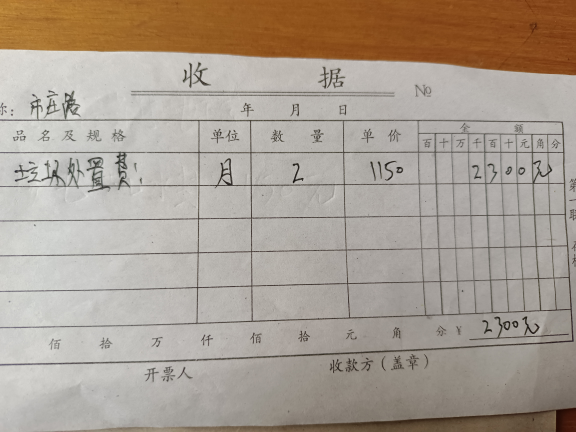 收据
№
称：市庄路
年 月 日
品名及规格 单位 数量 单价 金额
百十万千百十元角分
垃圾处置费： 月 2 1150 2300元
佰 拾 万 仟 佰 拾 元 角 分 ¥ 2300元
开票人 收款方（盖章）
第一联